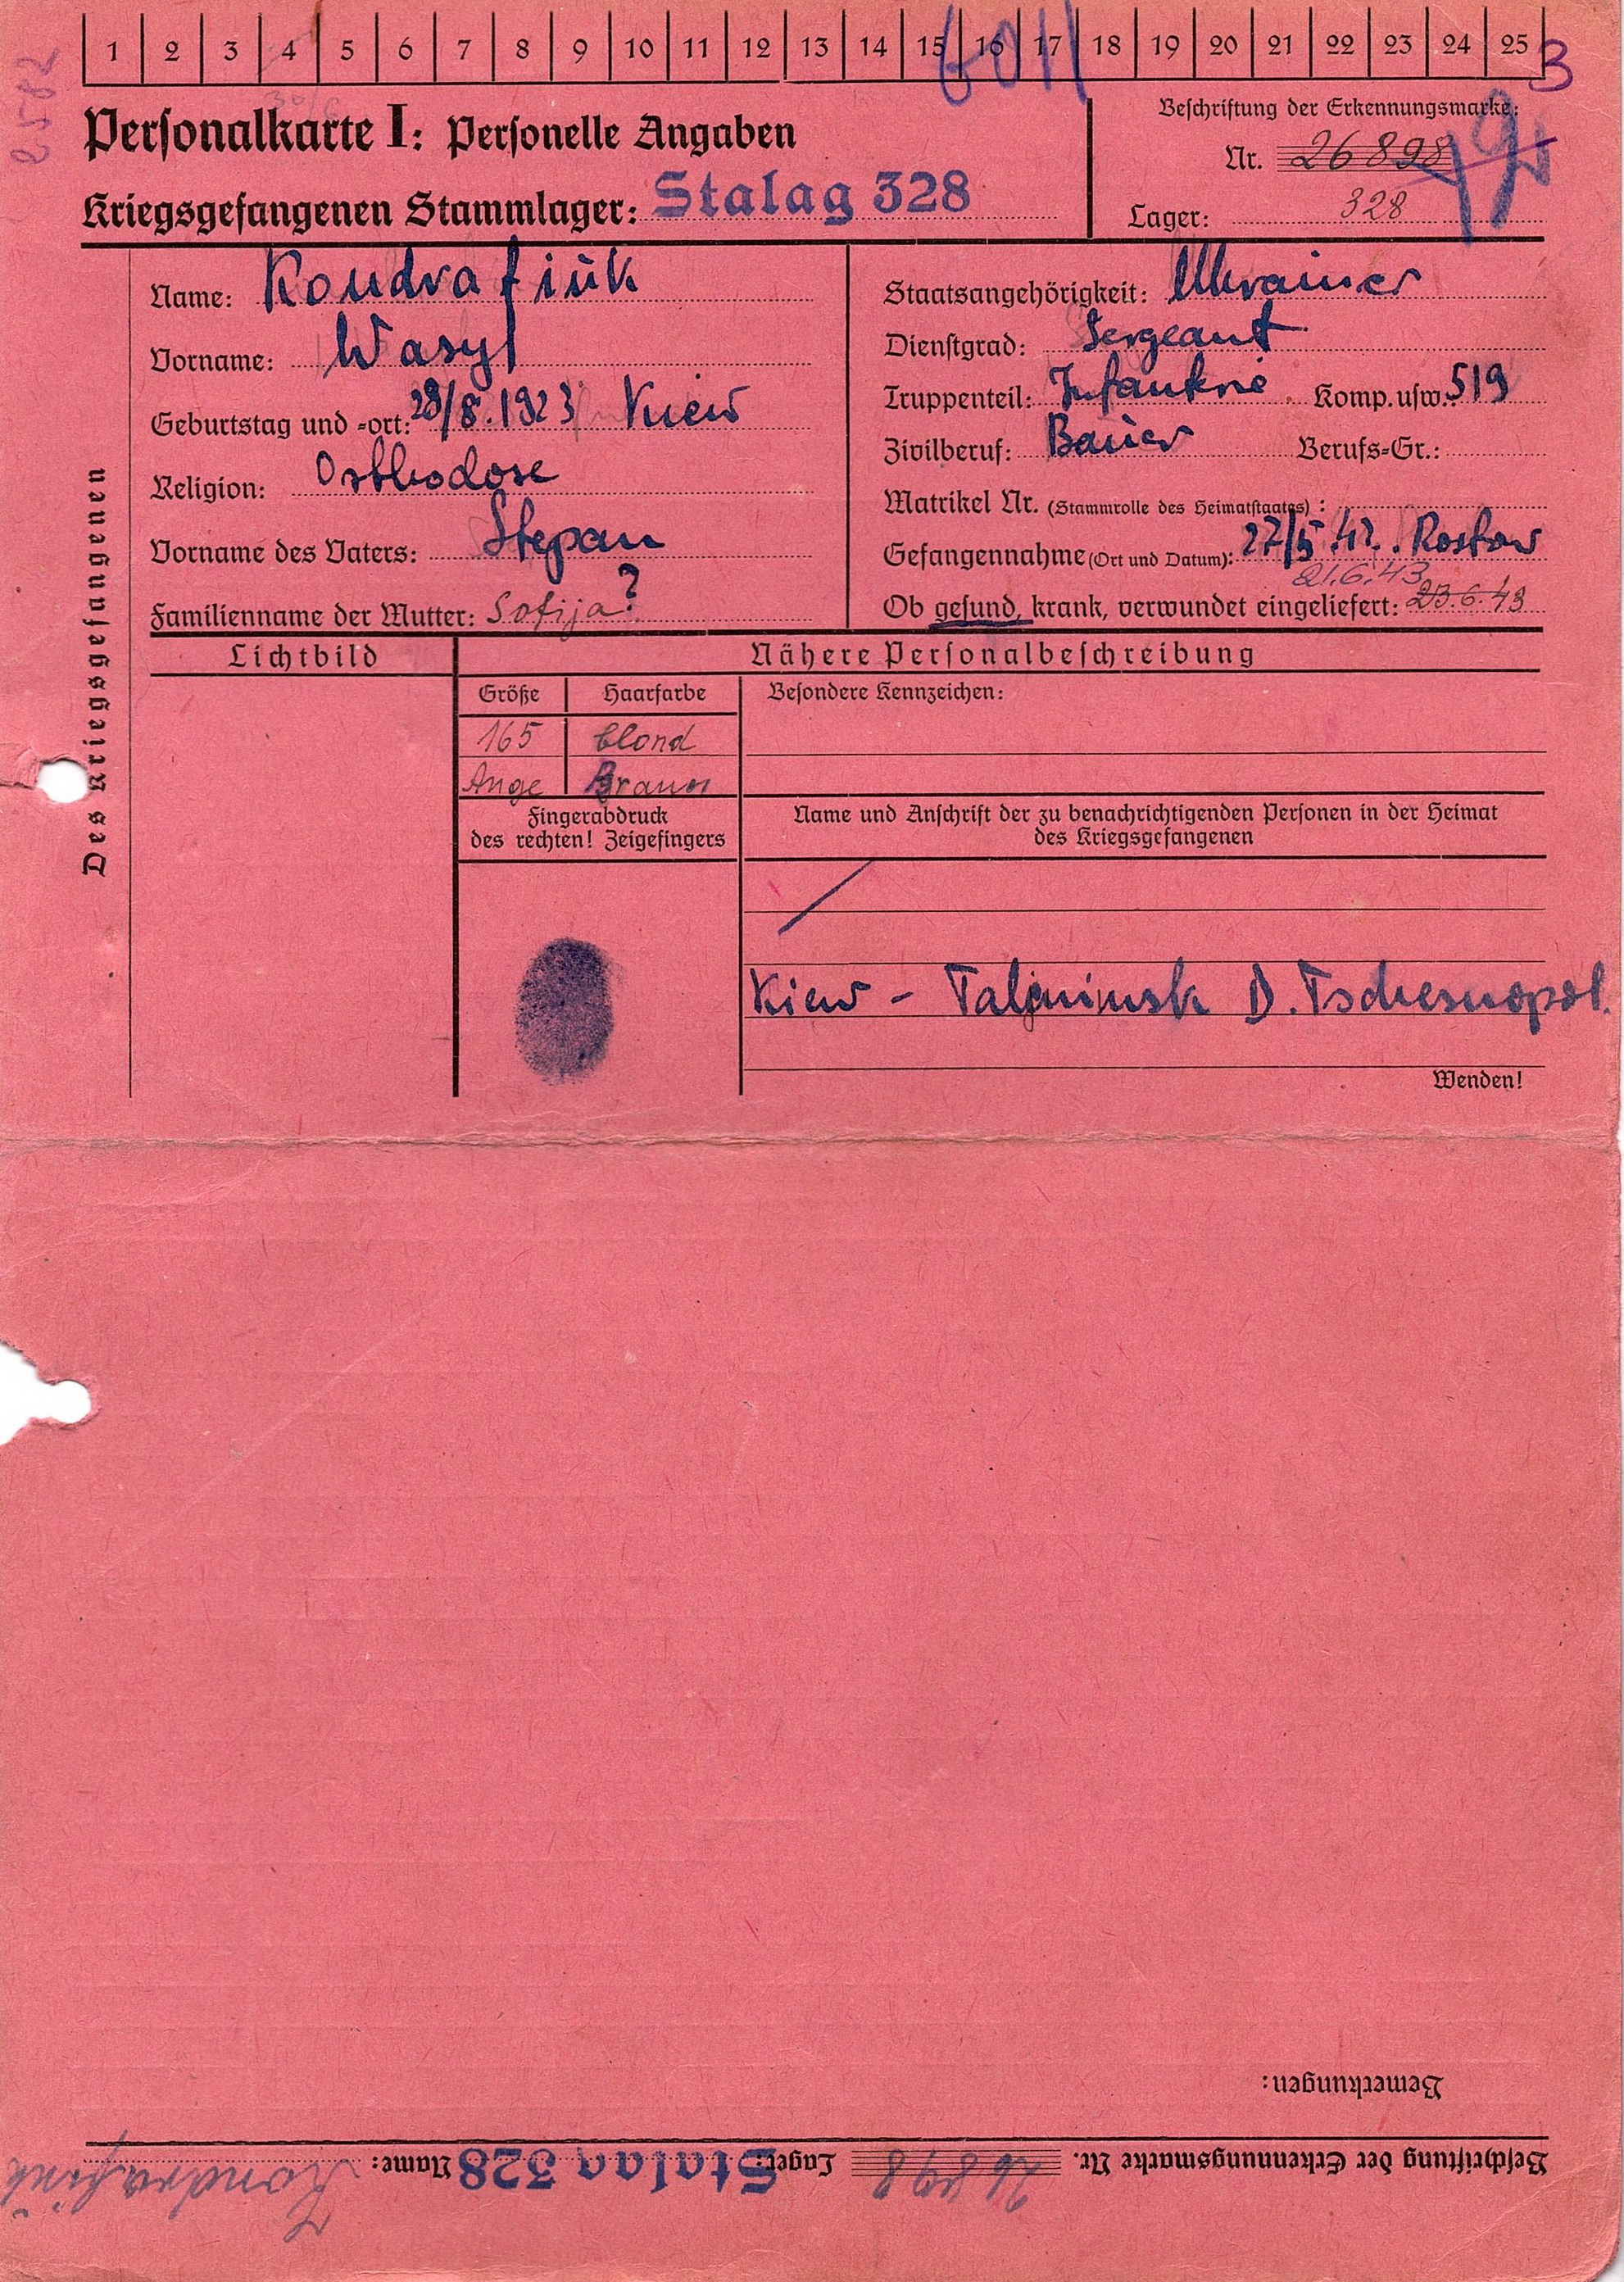 1 2 3 4 5 6 7 8 9 10 11 12 13 14 15 16 17 18 19 20 21 22 23 24 25
6011
3
2582
Personalkarte I: Personelle Angaben
Kriegsgefangenen Stammlager: Stalag 328
Beschriftung der Erkennungsmarke:
Nr. 26898
Lager: 328
Des Kriegsgefangenen
Name: Kondrafiuk
Vorname: Wasyl
Geburtstag und -ort: 29/8.1923 Kiew
Religion: Orthodose
Vorname des Vaters: Stepan
Familienname der Mutter: Sofija ?
Staatsangehörigkeit: Ukrainer
Dienstgrad: Sergeant
Truppenteil: Infanterie Komp. usw.: 519
Zivilberuf: Bauer Berufs-Gr.:
Matrikel Nr. (Stammrolle des Heimatstaates) :
Gefangennahme (Ort und Datum): 27/5.42. Rostow
21.6.43
Ob gesund, krank, verwundet eingeliefert: 23.6.43
Lichtbild
Nähere Personalbeschreibung
Größe Haarfarbe Besondere Kennzeichen:
165 blond
Auge Braun
Fingerabdruck
des rechten! Zeigefingers
Name und Anschrift der zu benachrichtigenden Personen in der Heimat
des Kriegsgefangenen
Kiew - D. Tschesnopol.
Wenden!
Bemerkungen:
Beschriftung der Erkennungsmarke Nr. 26898 Lager: Stalag 328 Name: Kondrafiuk